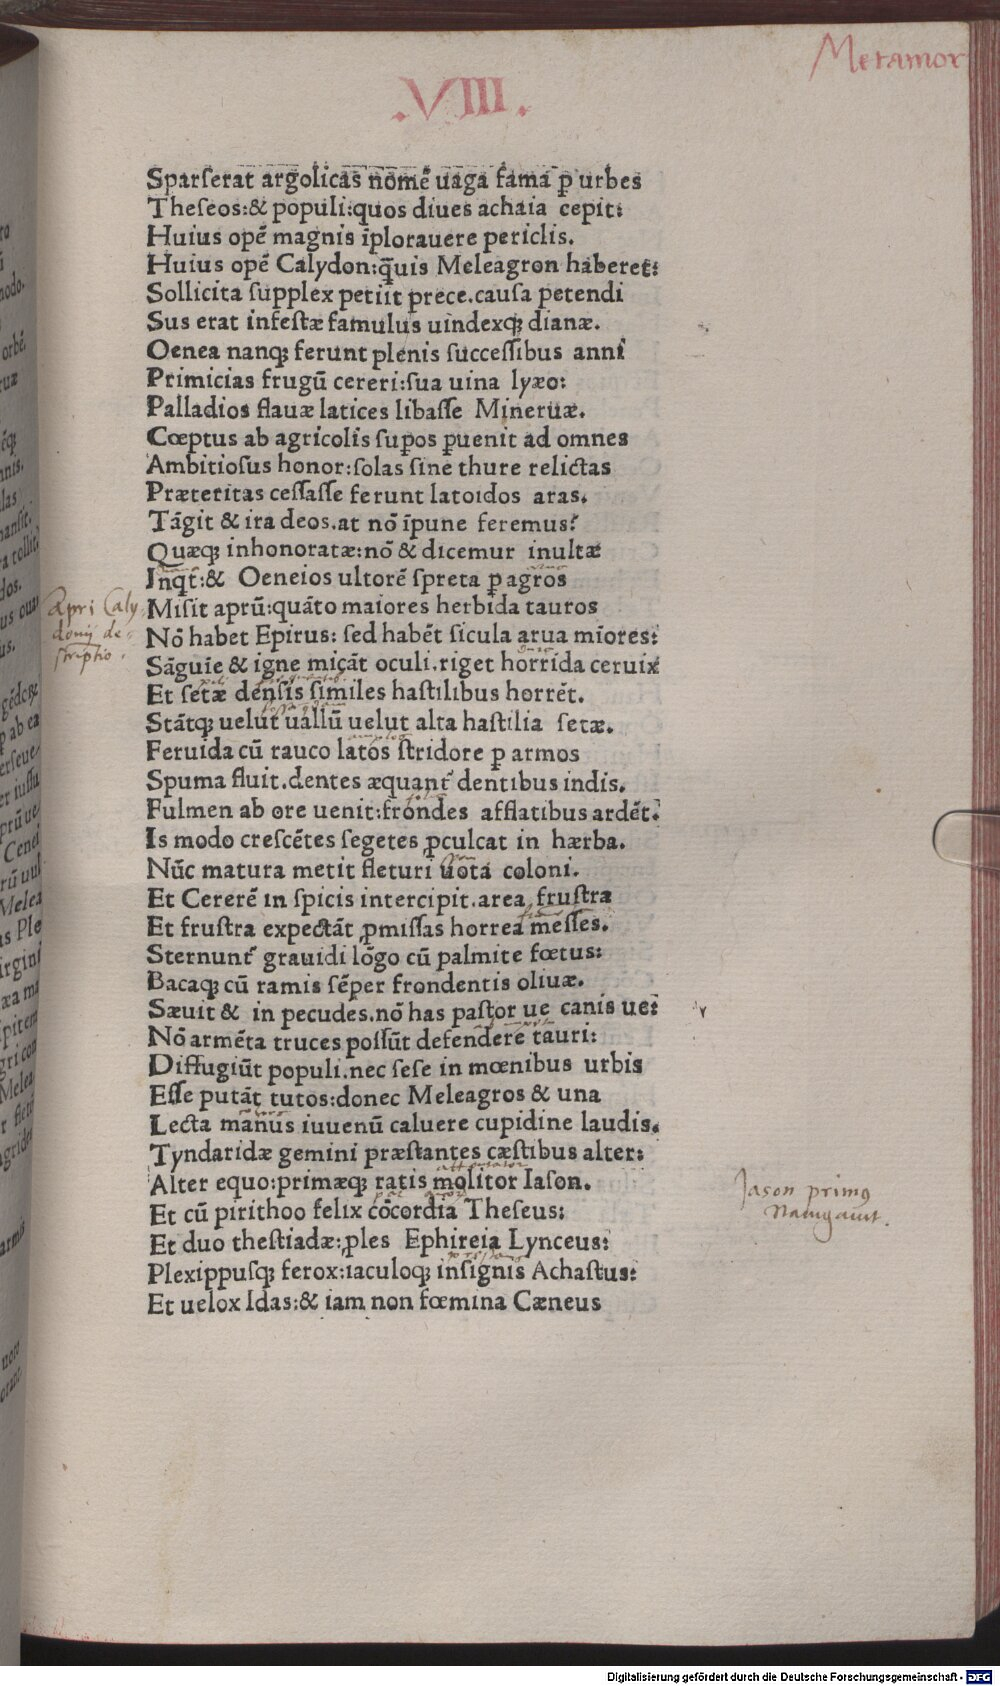 Metamor
.VIII.
Sparserat argolicas nomē uaga fama ꝑ urbes
Theseos:& populi:quos diues achaia cepit:
Huius opē magnis īplorauere periclis.
Huius opē Calydon:q̄uis Meleagron haberet:
Sollicita supplex petiit prece.causa petendi
Sus erat infestæ famulus uindexqꝫ dianæ.
Oenea nanqꝫ ferunt plenis successibus anni
Primicias frugū cereri:sua uina lyæo:
Palladios flauæ latices libasse Mineruæ.
Cœptus ab agricolis suꝑos ꝑuenit ad omnes
Ambitiosus honor:solas sine thure relictas
Præteritas cessasse ferunt latoidos aras.
Tāgit & ira deos.at nō īpune feremus:
Quæqꝫ inhonoratæ:nō & dicemur inultæ
Inqt:& Oeneios ultorē spreta ꝑ agros
Misit aprū:quāto maiores herbida tauros
Nō habet Epirus: sed habēt sicula arua miores:
Sāguie & igne micāt oculi.riget horrida ceruix
Et setæ densis similes hastilibus horrēt.
Stātqꝫ uelut uallū uelut alta hastilia setæ.
Feruida cū rauco latos stridore ꝑ armos
Spuma fluit.dentes æquant᷑ dentibus indis.
Fulmen ab ore uenit:frondes afflatibus ardēt.
Is modo crescētes segetes ꝓculcat in hærba.
Nūc matura metit fleturi uota coloni.
Et Cererē in spicis intercipit.area frustra
Et frustra expectāt ꝓmissas horrea messes.
Sternunt᷑ grauidi lōgo cū palmite fœtus:
Bacaqꝫ cū ramis sēper frondentis oliuæ.
Sæuit & in pecudes.nō has pastor ue canis ue:
Nō armēta truces possūt defendere tauri:
Diffugiūt populi.nec sese in mœnibus urbis
Esse putāt tutos:donec Meleagros & una
Lecta manus iuuenū caluere cupidine laudis.
Tyndaridæ gemini præstantes cæstibus alter:
Alter equo:primæqꝫ ratis molitor Iason.
Et cū pirithoo felix cōcordia Theseus:
Et duo thestiadæ:ꝓles Ephireia Lynceus:
Plexippusqꝫ ferox:iaculoqꝫ insignis Achastus:
Et uelox Idas:& iam non fœmina Cæneus
Apri Caly
donij de-
scriptio.
Jason primus
Nauigauit.
Digitalisierung gefördert durch die Deutsche Forschungsgemeinschaft - DFG